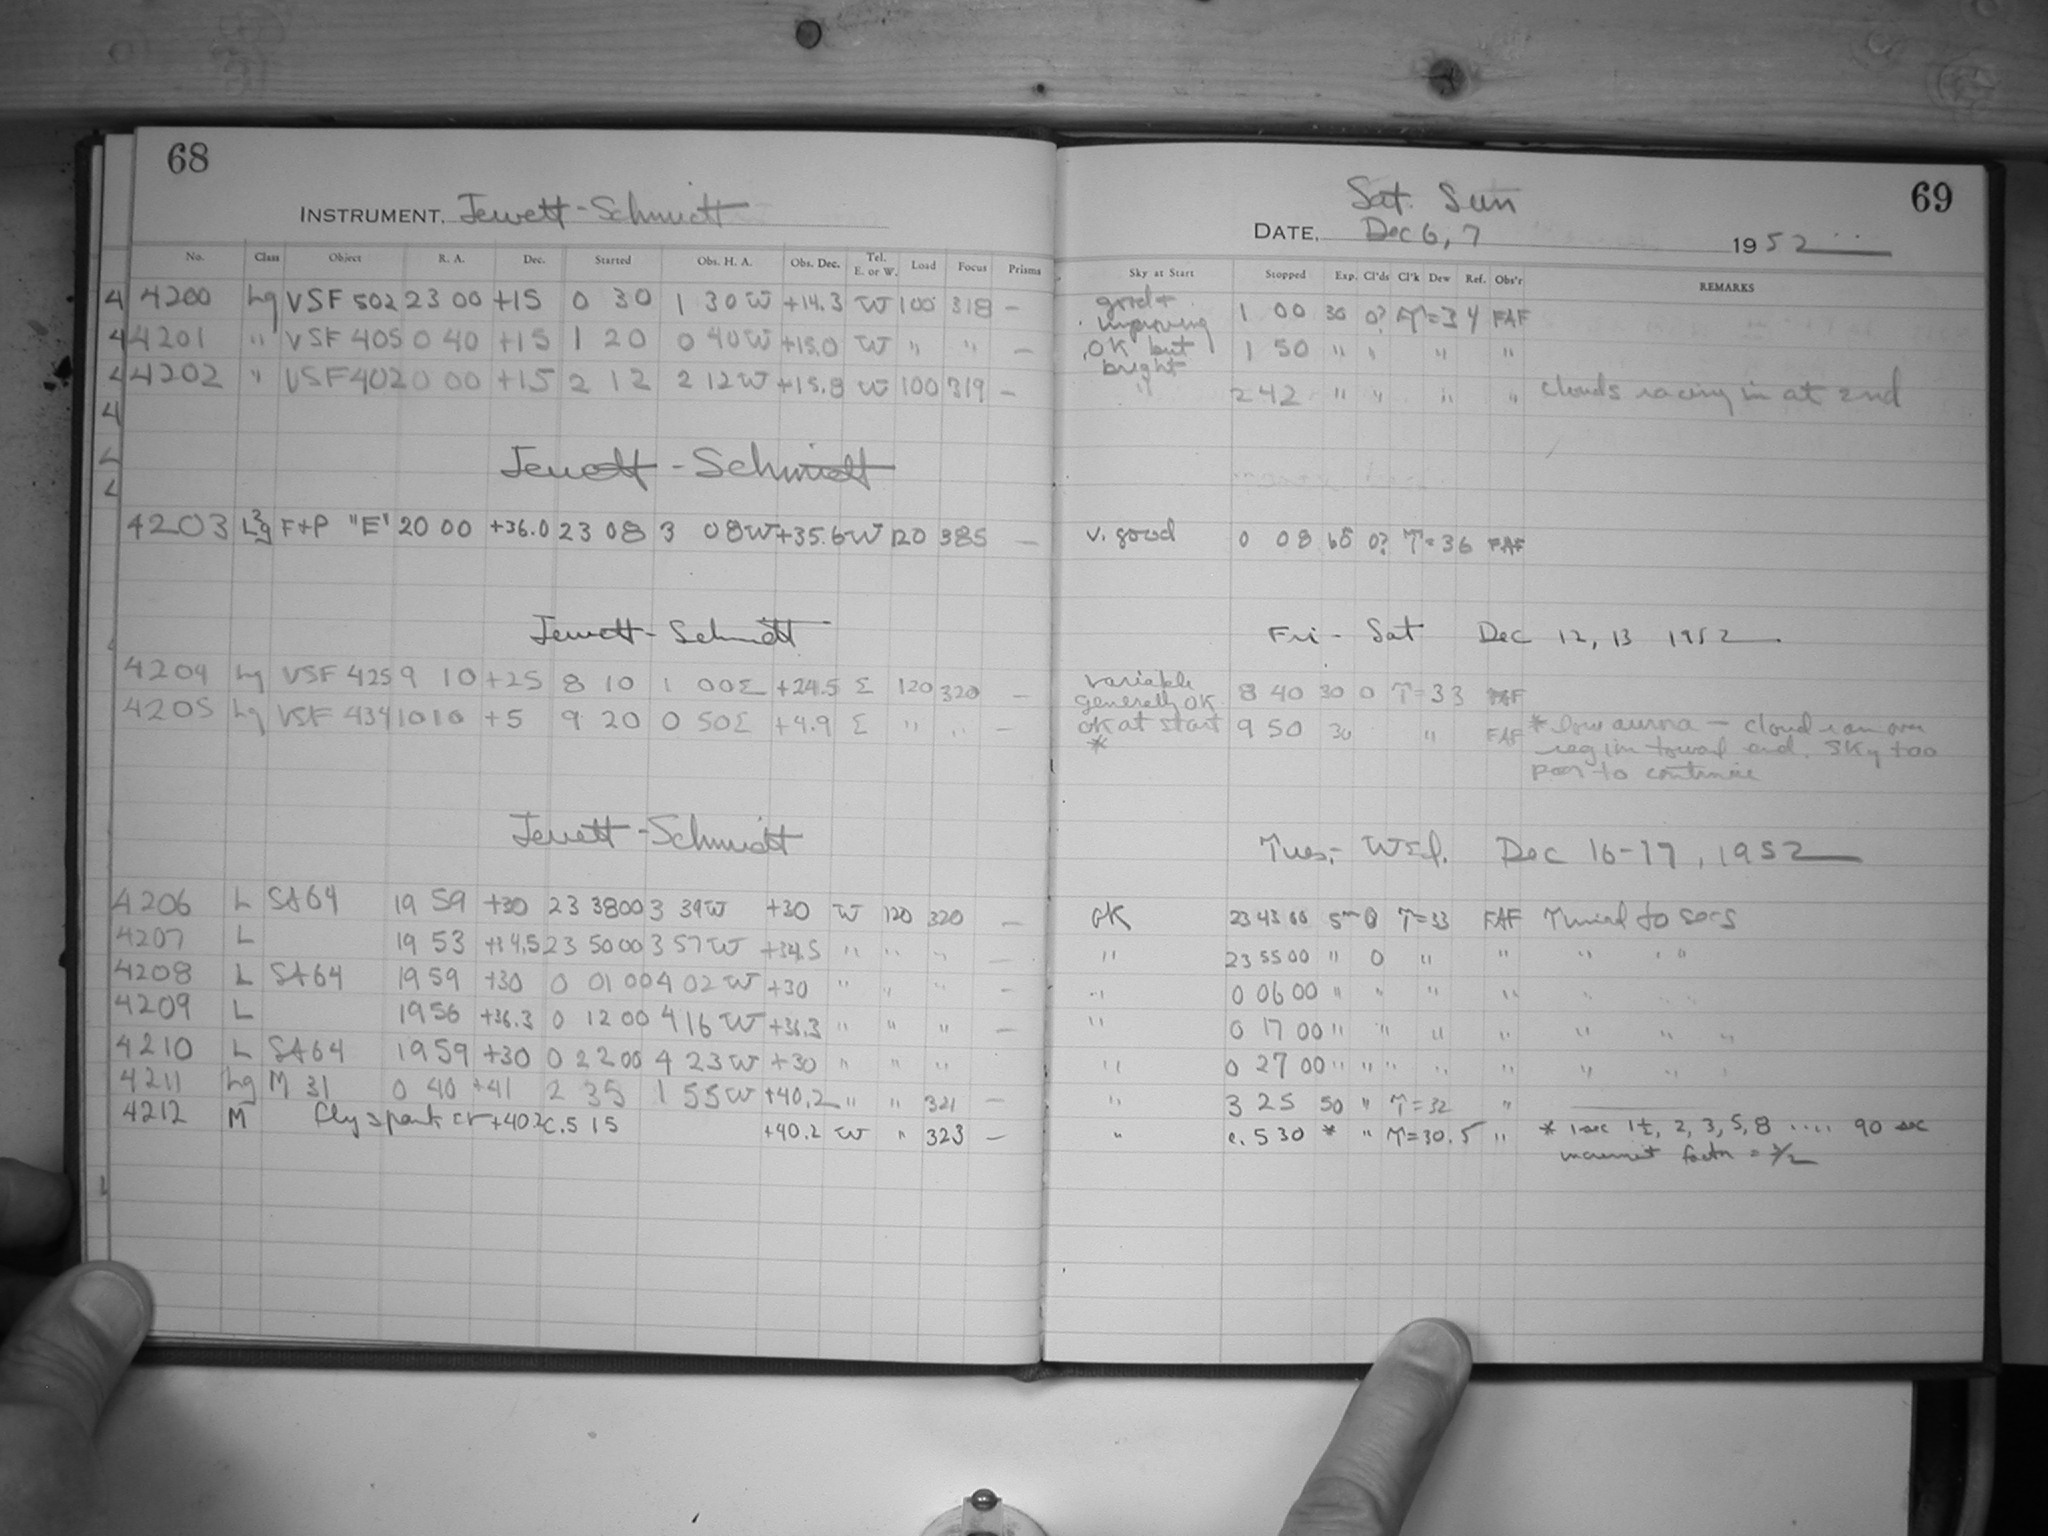 68
INSTRUMENT. Jewett-Schmidt
No. Class Object R. A. Dec. Started Obs. H. A. Obs. Dec. Tel. E. or W. Load Focus Prisms
4200 Lg VSF 502 23 00 +15 0 30 1 30 W +14.3 W 100 318 —
4201 " VSF 405 0 40 +15 1 20 0 40 W +15.0 W " " —
4202 " VSF 402 0 00 +15 2 12 2 12 W +15.8 W 100 319 —
Jewett-Schmidt
4203 F+P "E" 20 00 +36.0 23 08 3 08 W +35.6 W 120 385 —
Jewett-Schmidt
4204 Lg VSF 425 9 10 +25 8 10 1 00 E +24.5 E 120 320 —
4205 Lg VSF 434 10 10 +5 9 20 0 50 E +4.9 E " " —
Jewett-Schmidt
4206 L SA64 19 59 +30 23 38 00 3 39 W +30 W 120 320 —
4207 L 19 53 +34.5 23 50 00 3 57 W +34.5 " " " —
4208 L SA64 19 59 +30 0 01 00 4 02 W +30 " " " —
4209 L 19 56 +36.3 0 12 00 4 16 W +36.3 " " " —
4210 L SA64 19 59 +30 0 22 00 4 23 W +30 " " "
4211 Lg M 31 0 40 +41 2 35 1 55 W +40.2 " " 321 —
4212 M Fly spank cr +40.2 c. 5 15 +40.2 W " 323 —
69
Sat. Sun
DATE. Dec 6, 7 1952
Sky at Start Stopped Exp. Cl'ds Cl'k Dew Ref. Obs'r REMARKS
good +
improving 1 00 30 0? T=34 FAF
OK but 1 50 " " " "
bright
" 2 42 " " " " clouds racing in at end
v. good 0 08 60 0? T=36 FAF
Fri - Sat Dec 12, 13 1952
variable
generally OK 8 40 30 0 T=33 FAF
OK at start 9 50 30 " FAF * low aurora — cloud ran over
* region toward end. Sky too
poor to continue
Tues,- Wed. Dec 16-17, 1952
OK 23 43 00 5m 0 T=33 FAF Timed to secs
" 23 55 00 " 0 " " " "
" 0 06 00 " " " " " "
" 0 17 00 " " " " " " "
" 0 27 00 " " " " " " "
" 3 25 50 " T=32 "
" c. 5 30 * " T=30.5 " * 1 sec 1½, 2, 3, 5, 8 .... 90 sec
increment factor = 3/2